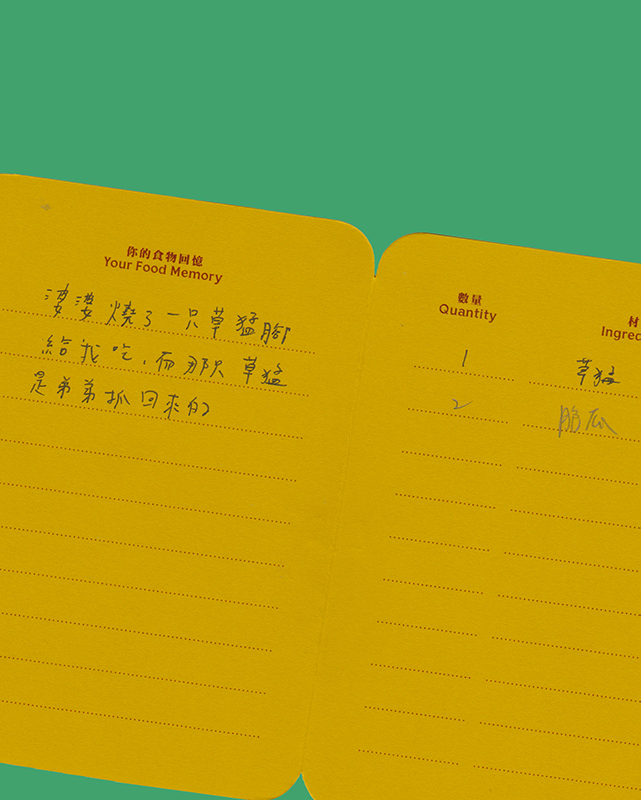 你的食物回憶
Your Food Memory
婆婆燒了一只草猛腳
給我吃，而那只草猛
是弟弟抓回來的
數量 材
Quantity Ingre
1 草猛
2 瓜